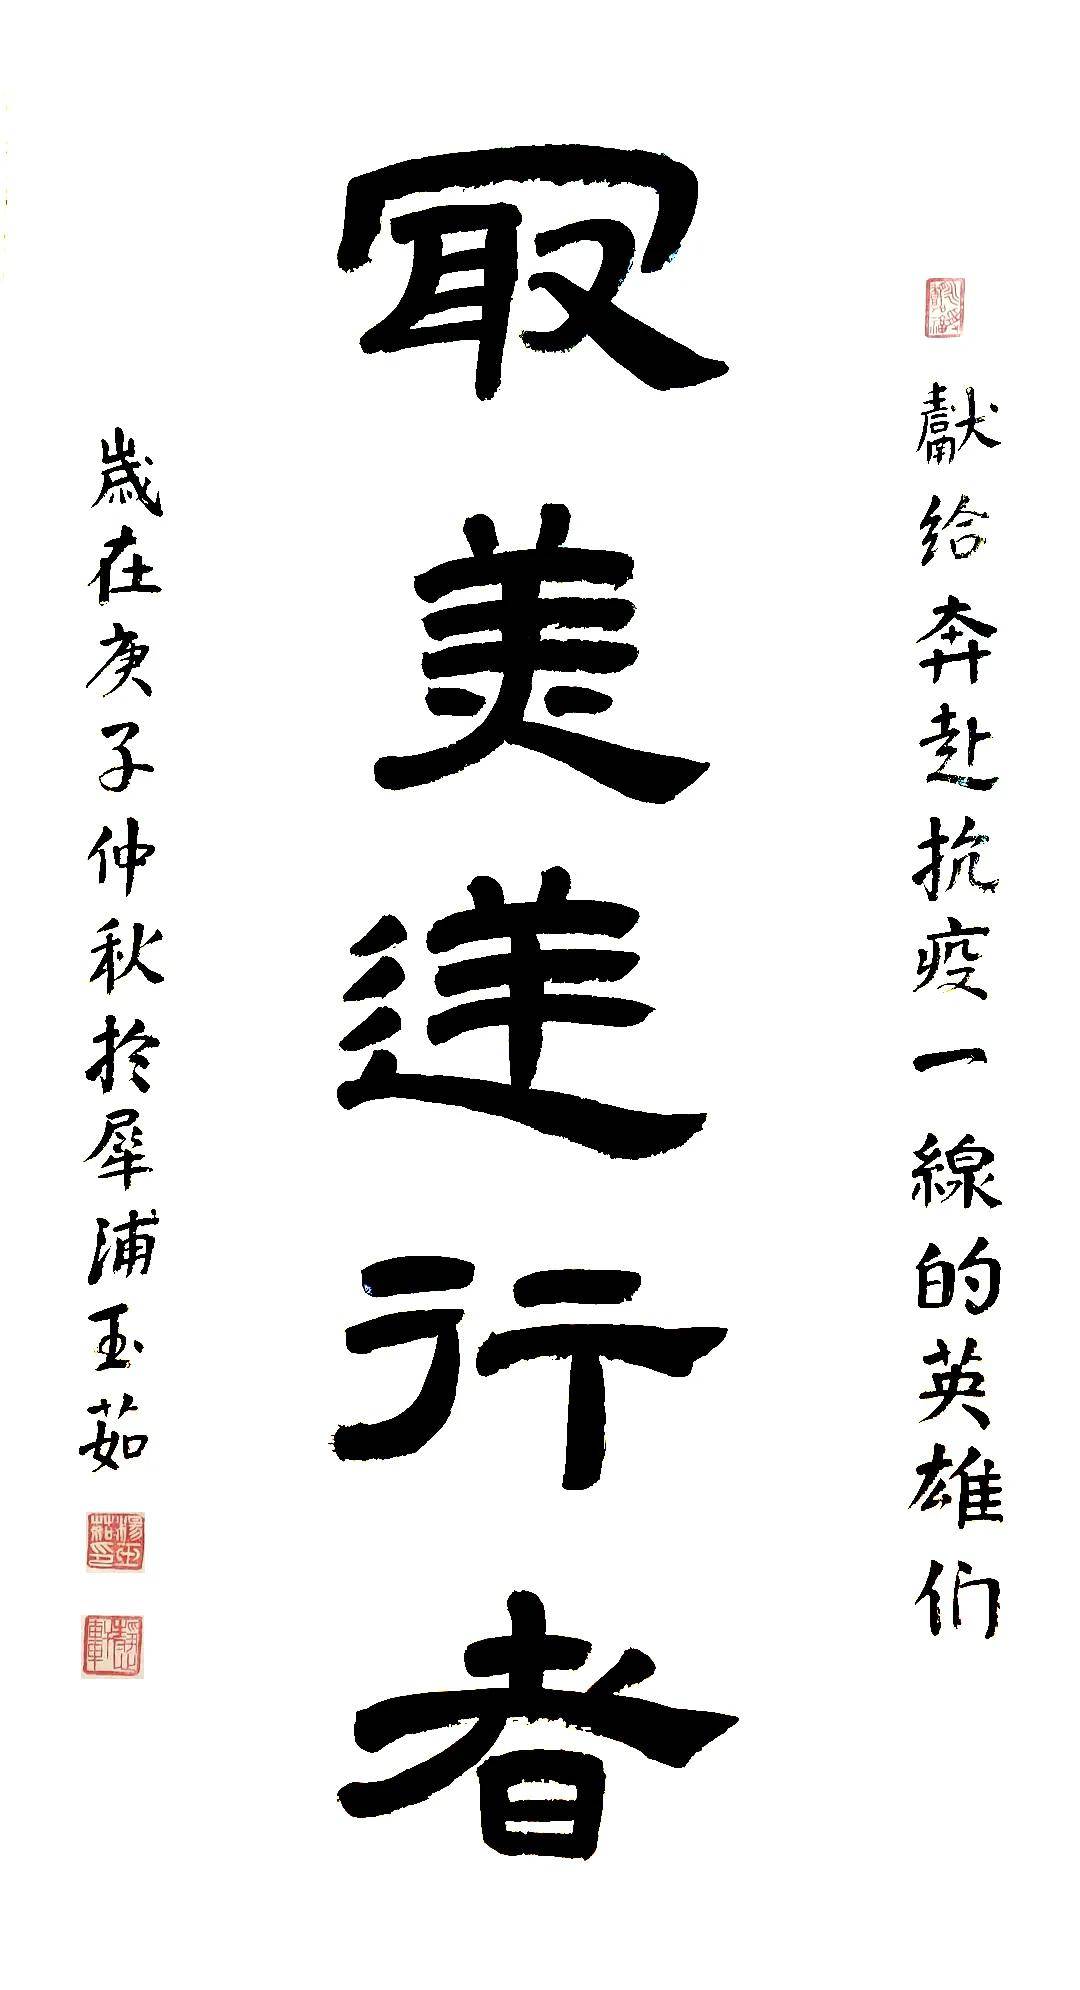 獻给奔赴抗疫一線的英雄们
冣美逆行者
歲在庚子仲秋於犀浦玉茹
楊玉茹印